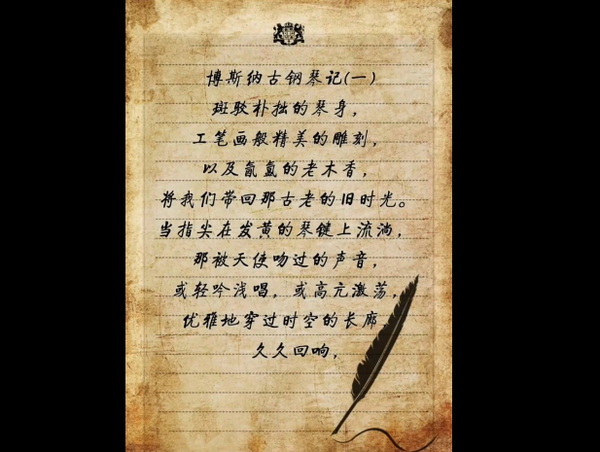 博斯纳古钢琴记(一)
斑驳朴拙的琴身，
工笔画般精美的雕刻，
以及氤氲的老木香，
将我们带回那古老的旧时光。
当指尖在发黄的琴键上流淌，
那被天使吻过的声音，
或轻吟浅唱，或高亢激荡，
优雅地穿过时空的长廊
久久回响，